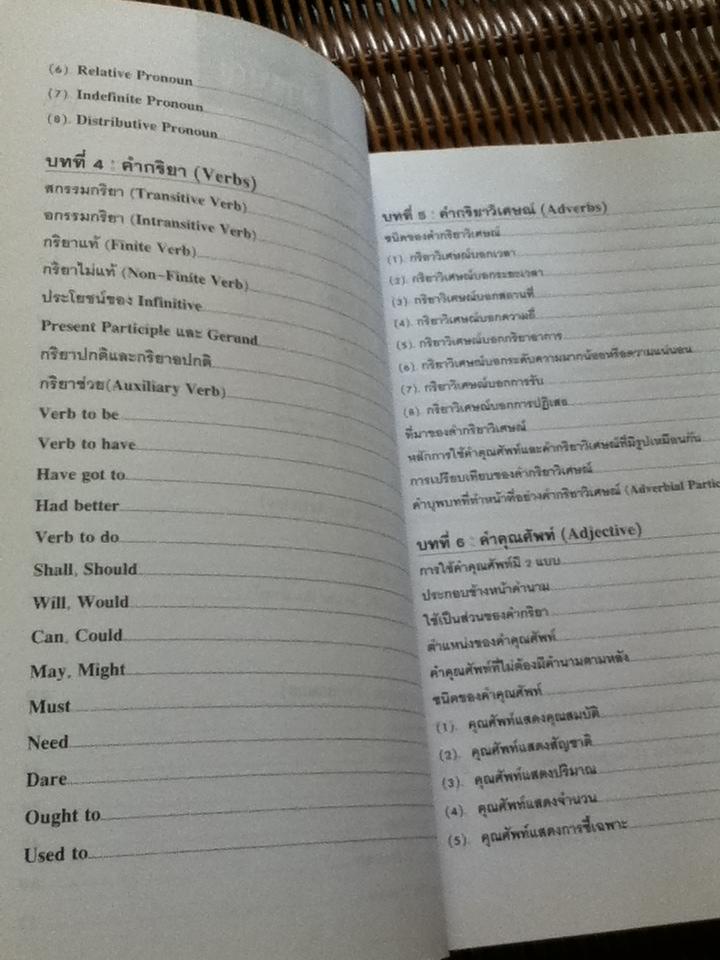 (6). Relative Pronoun
(7). Indefinite Pronoun
(8). Distributive Pronoun
บทที่ 4 : คำกริยา (Verbs)
สกรรมกริยา (Transitive Verb)
อกรรมกริยา (Intransitive Verb)
กริยาแท้ (Finite Verb)
กริยาไม่แท้ (Non-Finite Verb)
ประโยชน์ของ Infinitive
Present Participle และ Gerund
กริยาปกติและกริยาอปกติ
กริยาช่วย(Auxiliary Verb)
Verb to be
Verb to have
Have got to
Had better
Verb to do
Shall, Should
Will, Would
Can, Could
May, Might
Must
Need
Dare
Ought to
Used to
บทที่ 5 : คำกริยาวิเศษณ์ (Adverbs)
ชนิดของคำกริยาวิเศษณ์
(1). กริยาวิเศษณ์บอกเวลา
(2). กริยาวิเศษณ์บอกระยะเวลา
(3). กริยาวิเศษณ์บอกสถานที่
(4). กริยาวิเศษณ์บอกความถี่
(5). กริยาวิเศษณ์บอกกริยาอาการ
(6). กริยาวิเศษณ์บอกระดับความมากน้อยหรือความแน่นอน
(7). กริยาวิเศษณ์บอกการรับ
(8). กริยาวิเศษณ์บอกการปฏิเสธ
ที่มาของคำกริยาวิเศษณ์
หลักการใช้คำคุณศัพท์และคำกริยาวิเศษณ์ที่มีรูปเหมือนกัน
การเปรียบเทียบของคำกริยาวิเศษณ์
คำบุพบทที่ทำหน้าที่อย่างคำกริยาวิเศษณ์ (Adverbial Partic
บทที่ 6 : คำคุณศัพท์ (Adjective)
การใช้คำคุณศัพท์มี 2 แบบ
ประกอบข้างหน้าคำนาม
ใช้เป็นส่วนของคำกริยา
ตำแหน่งของคำคุณศัพท์
คำคุณศัพท์ที่ไม่ต้องมีคำนามตามหลัง
ชนิดของคำคุณศัพท์
(1). คุณศัพท์แสดงคุณสมบัติ
(2). คุณศัพท์แสดงสัญชาติ
(3). คุณศัพท์แสดงปริมาณ
(4). คุณศัพท์แสดงจำนวน
(5). คุณศัพท์แสดงการชี้เฉพาะ